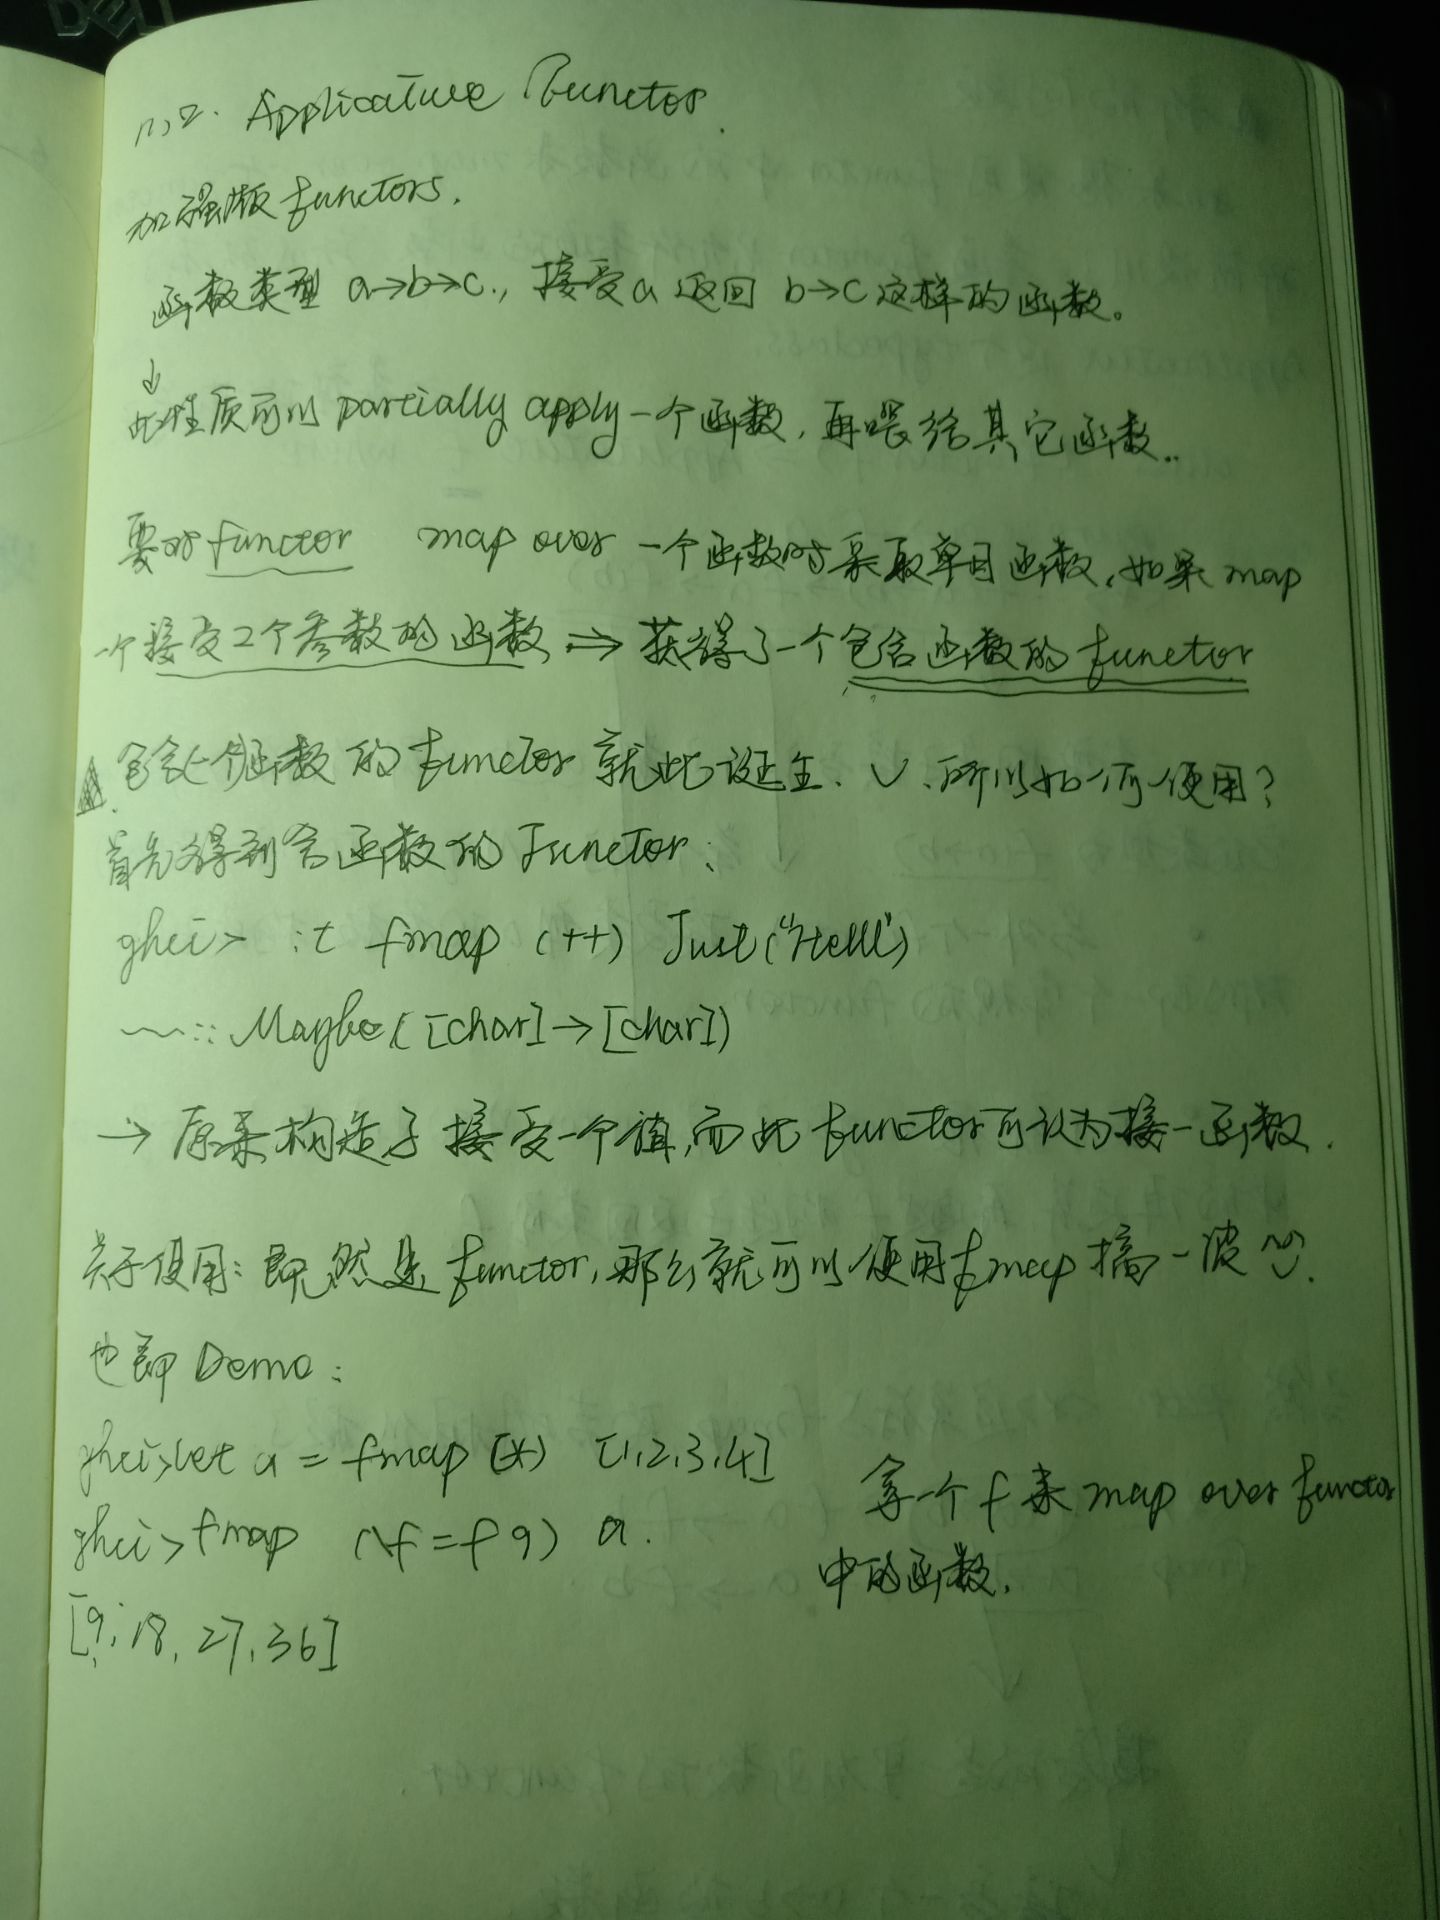 11.2. Applicative Functor.
加强版 functors.
函数类型 a→b→c., 接受a 返回 b→c 这样的函数。
↓
此性质可以 partially apply 一个函数, 再喂给其它函数..
要对 functor map over 一个函数时采取单目函数, 如果 map
一个接受2个参数的函数 ⇒ 获得了一个包含函数的 functor
包含一个函数的 functor 就此诞生. 所以如何使用?
首先得到含函数的 Functor:
ghci> :t fmap (++) Just("Hell")
~~:: Maybe ([char]→[char])
→ 原来构造子接受一个值,而此 functor 可认为接一函数.
关于使用: 既然是 functor, 那么就可以使用 fmap 搞一波
也即 Demo:
ghci>let a = fmap (*) [1,2,3,4]
ghci> fmap (\f = f 9) a.
[9, 18, 27, 36]
拿一个 f 来 map over functor
中的函数.